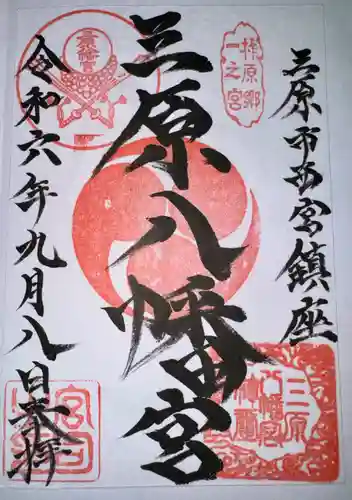 三原市西宮鎮座
三原八幡宮
令和六年九月八日奉拝
柞原郷
一之宮
三原
八幡宮